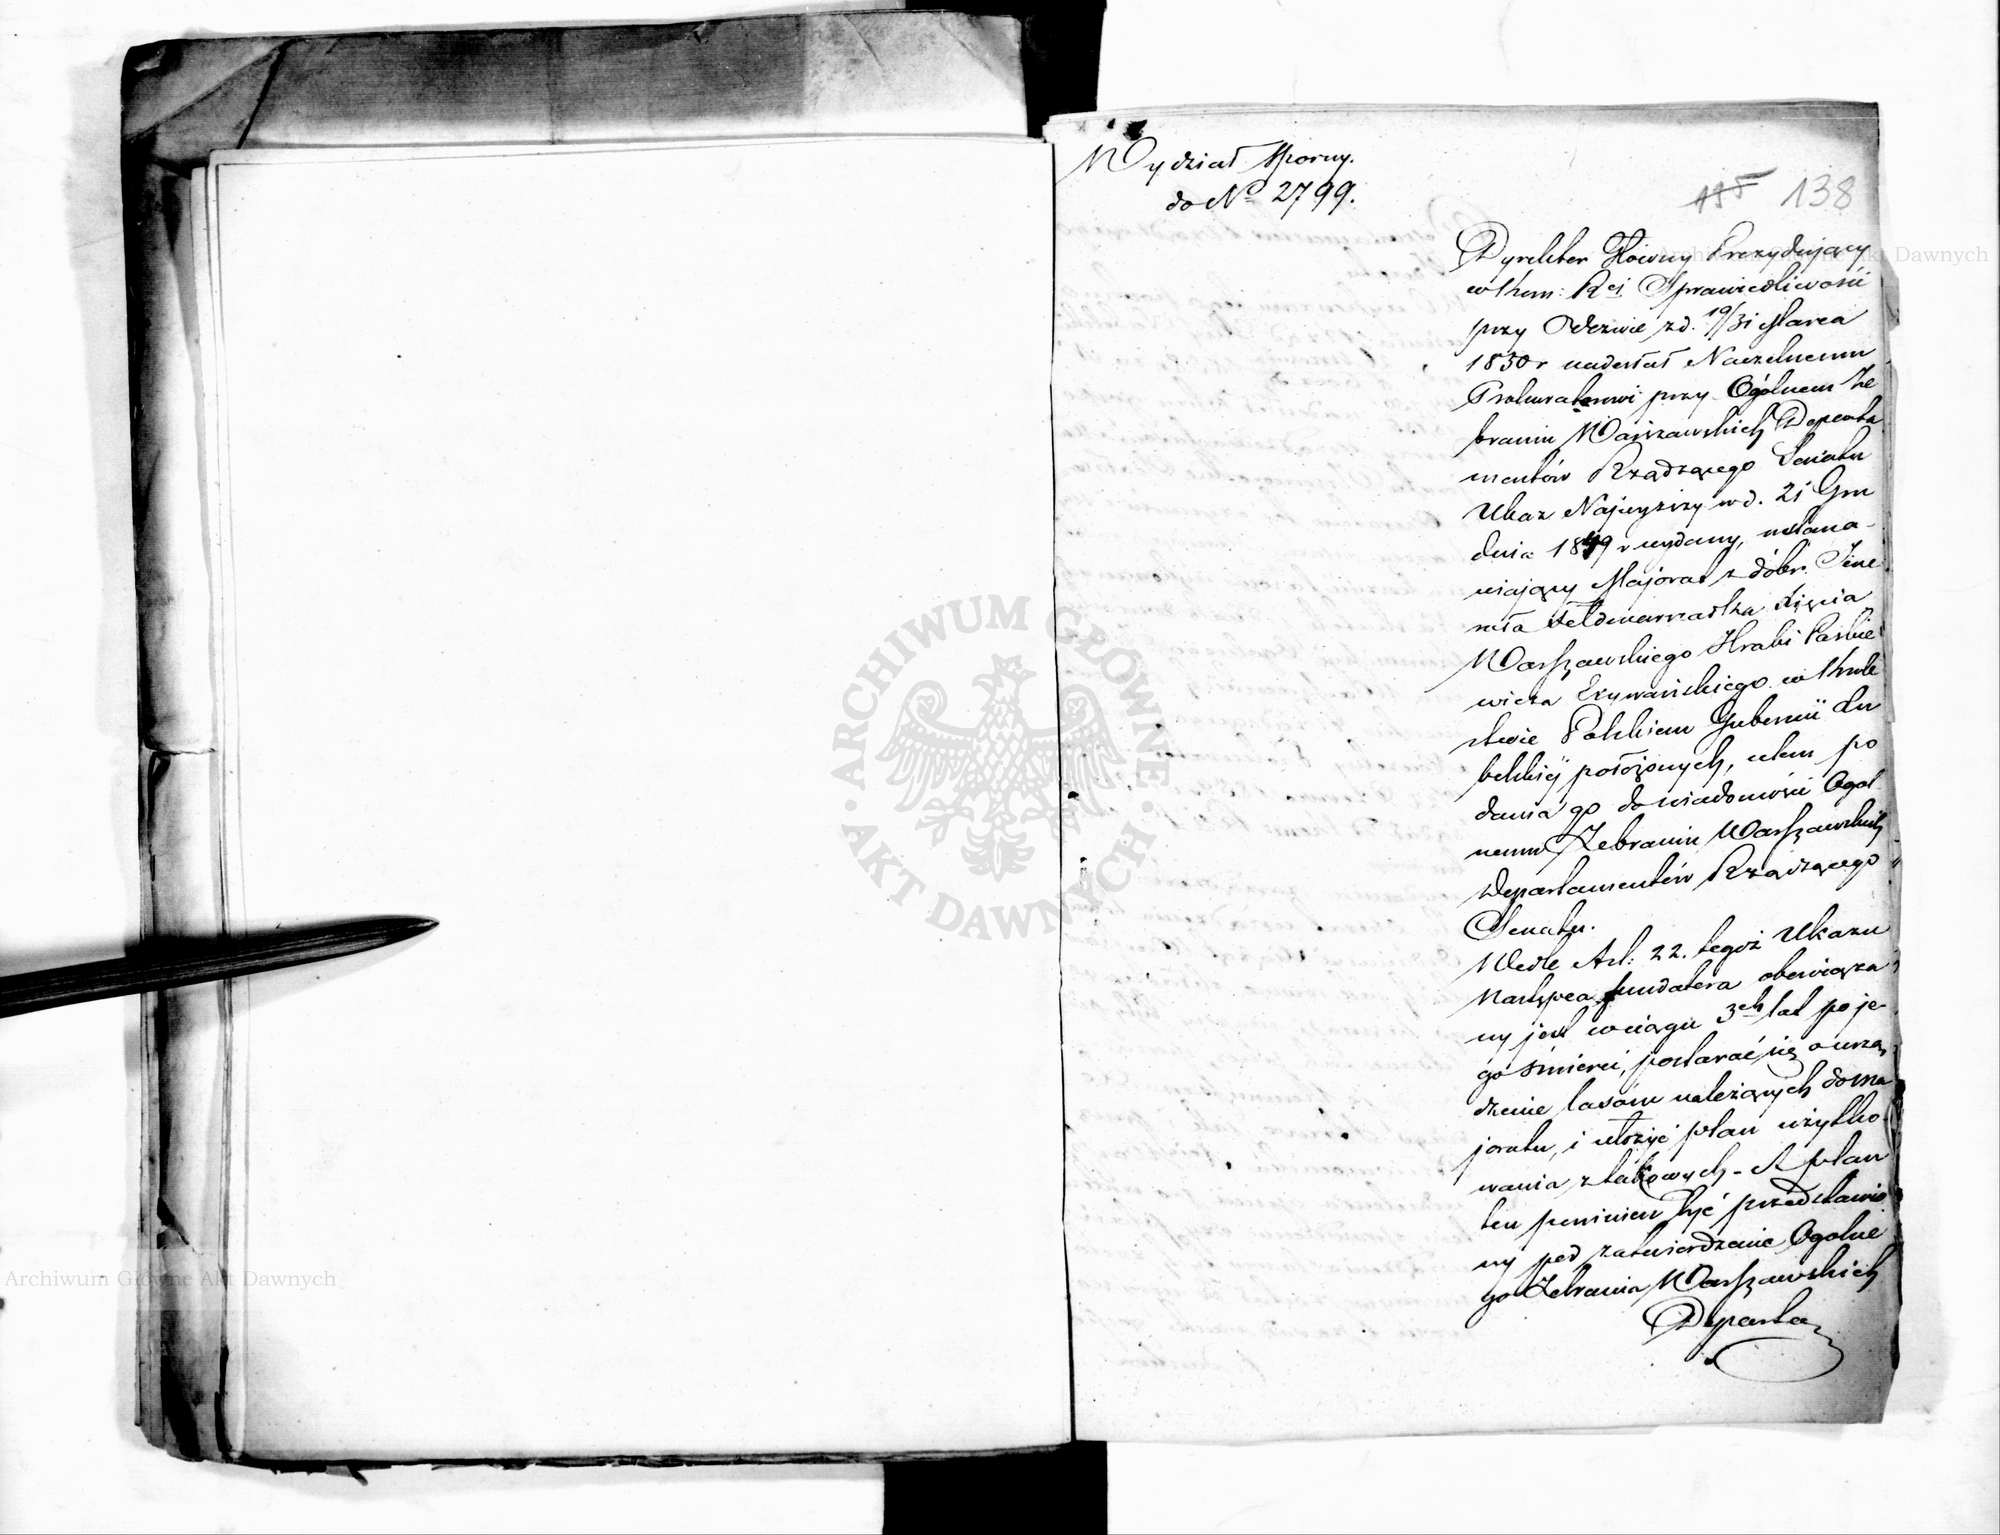 Wydział Sporny.
do No 2799.
115 138
Dyrektor Główny Prezydujący
w Kom: Rej Sprawiedliwości
przy Odezwie z d. 19/31 Marca
1850 r nadesłał Naczelnemu
Prokuratorowi przy Ogólnem Ze
braniu Warszawskich Departa
mentów Rządzącego Senatu
Ukaz Najwyższy w d. 21 Gru
dnia 1849 r wydany, ustana-
wiający Majorat z dóbr Jene
rała Feldmarszałka Xięcia
Warszawskiego Hrabi Paskie
wicza Erywańskiego w Króle
stwie Polskiem Gubernii Lu
belskiej położonych, celem po
dania go do wiadomości Ogól
nemu Zebraniu Warszawskich
Departamentów Rządzącego
Senatu.
Wedle Art: 22. tegoż Ukazu
Następca fundatora obowiąza
ny jest w ciągu 3ch lat po je-
go śmierci, postarać się o urzą
dzenie lasów należących do ma
joratu, i ułożyć plan użytko-
wania z takowych - A plan
ten powinien być przedstawio
ny pod zatwierdzenie Ogólne
go Zebrania Warszawskich
Departa
ARCHIWUM GŁÓWNE
AKT DAWNYCH
Archiwum Główne Akt Dawnych
Archiwum Główne Akt Dawnych